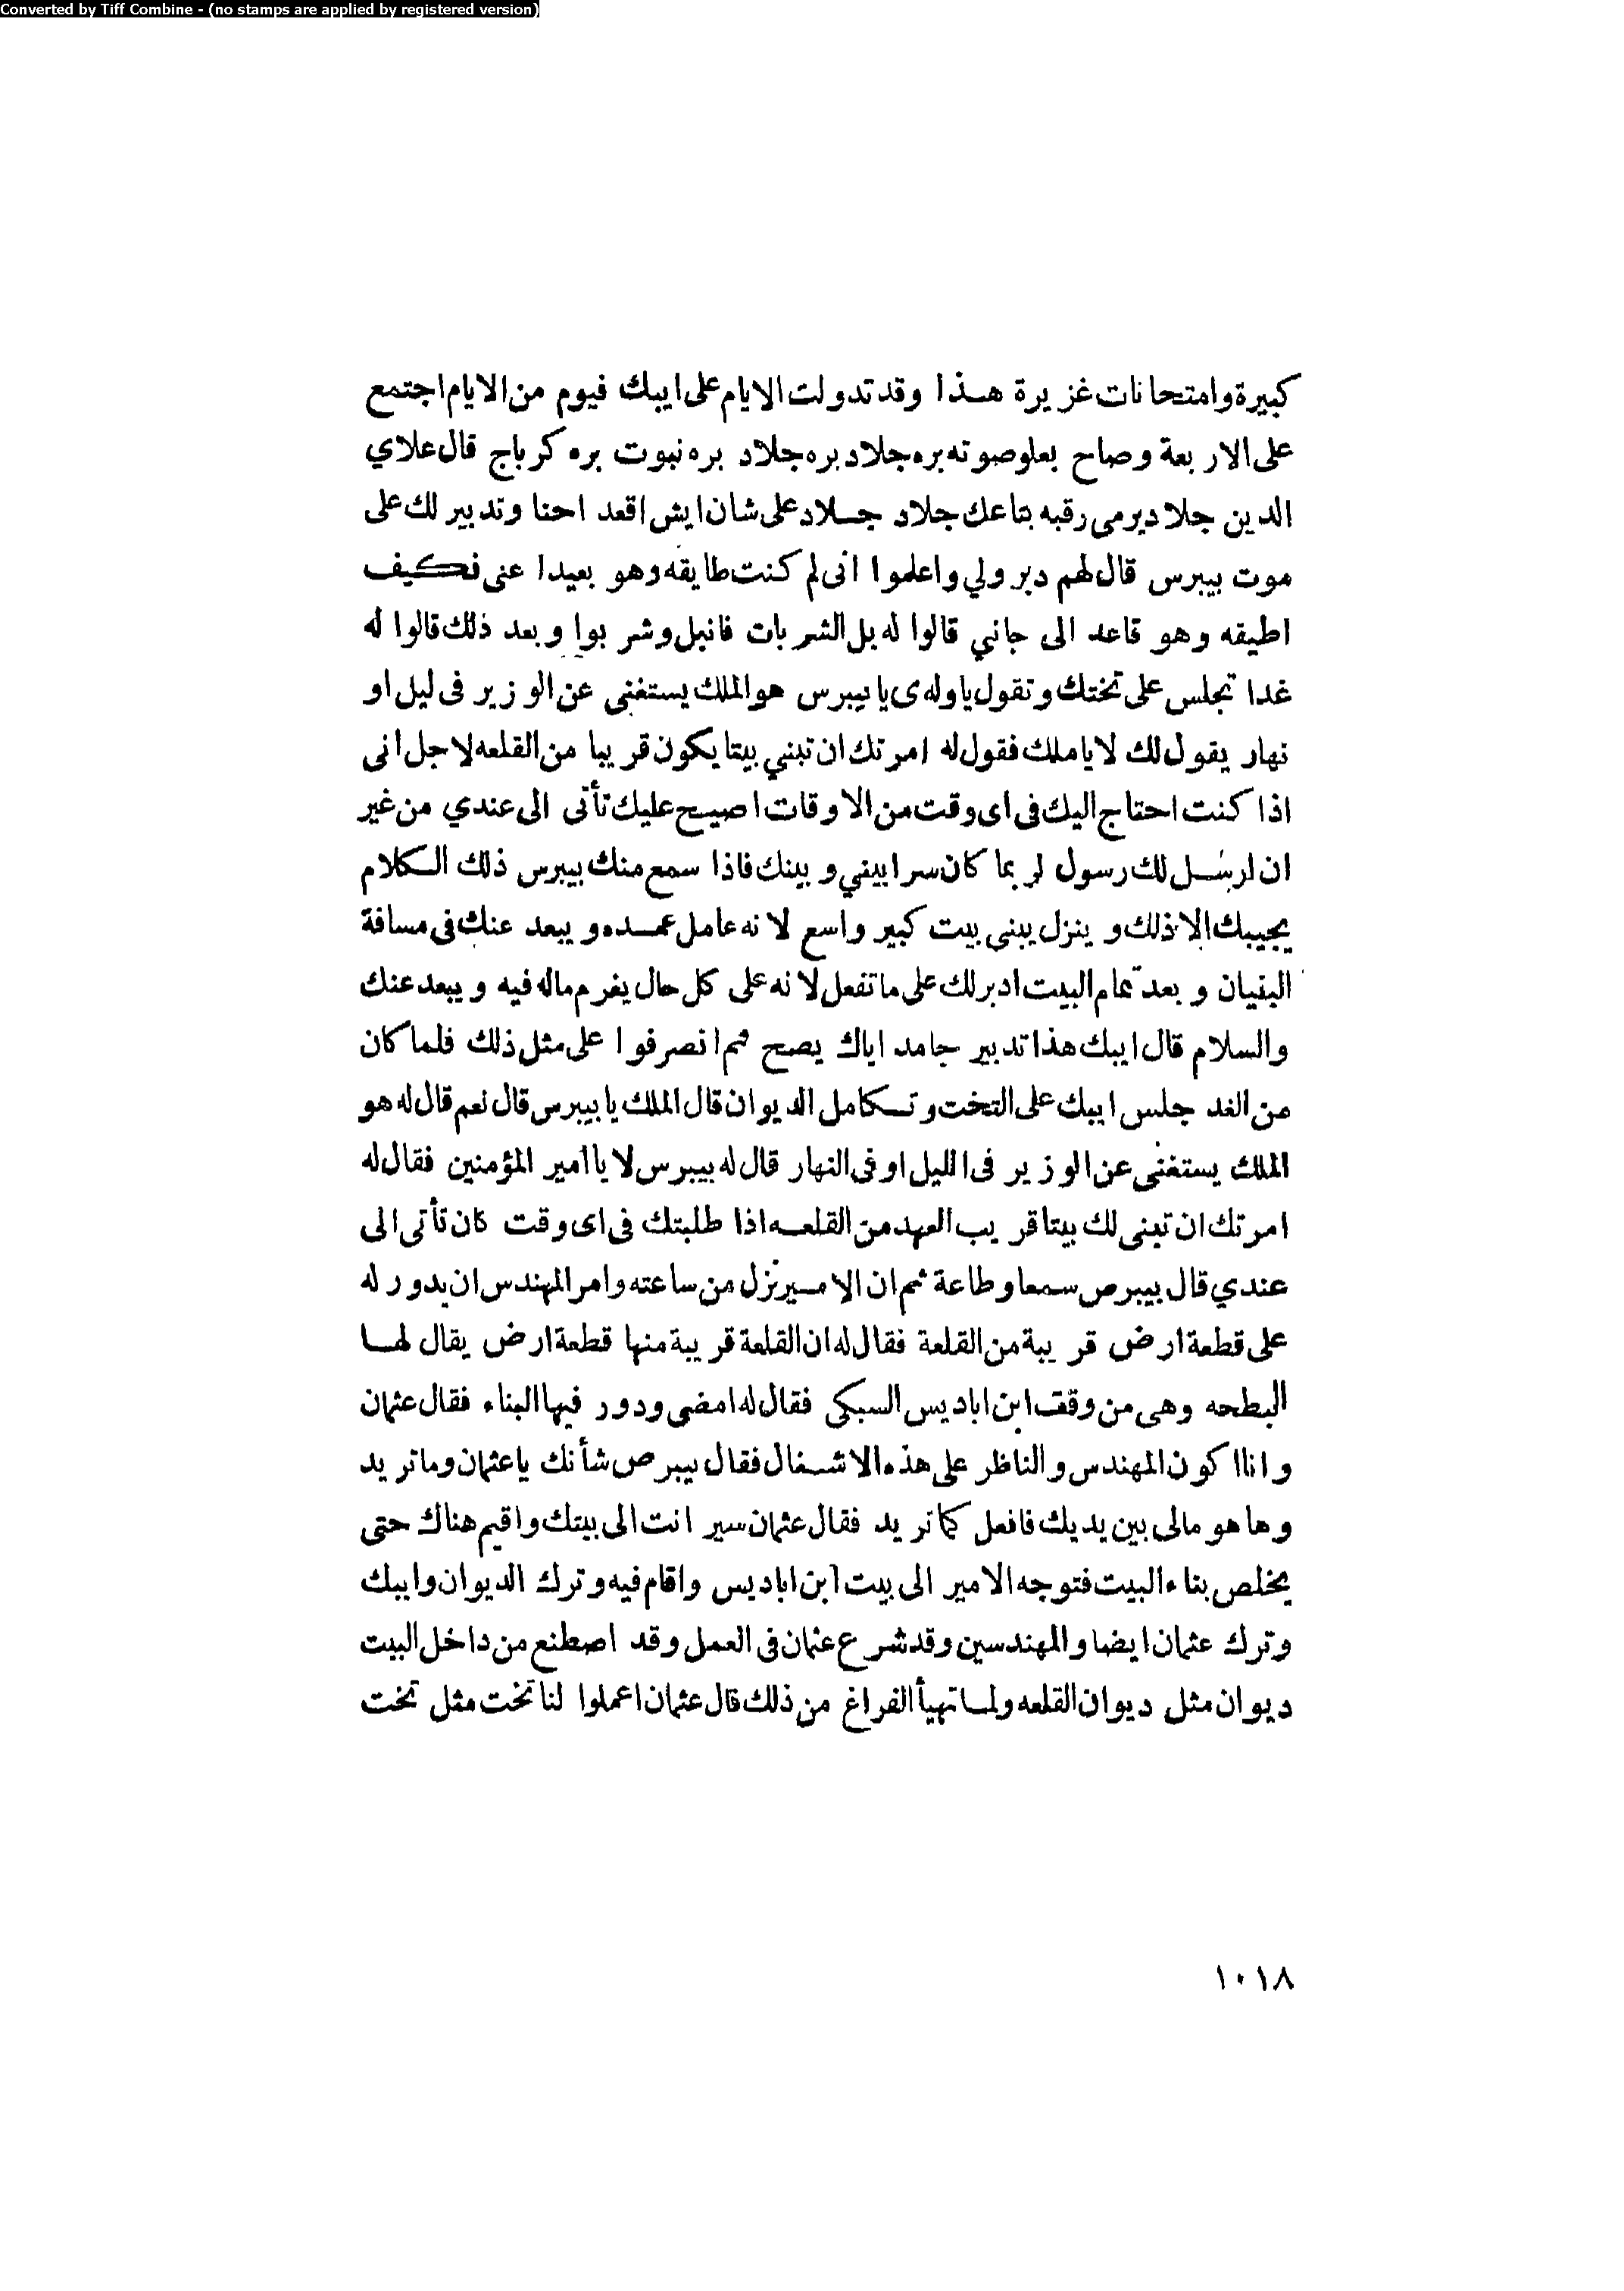 Converted by Tiff Combine - (no stamps are applied by registered version)
كبيرة وامتحانات غزيرة هذا وقد تدولت الايام على ايبك فيوم من الايام اجتمع
على الاربعة وصاح بعلو صوته بره جلاد بره جلاد بره نبوت بره كرباج قال علاي
الدين جلاد يرمى رقبه بتاعك جلاد جلاد على شان ايش اقعد احنا وتدبير لك على
موت بيبرس قال لهم دبرولي واعلموا انى لم كنت طايقه وهو بعيدا عنى فكيف
اطيقه وهو قاعد الى جانبي قالوا له بل الشربات فانبل وشربوا وبعد ذلك قالوا له
غدا تجلس على تختك وتقول ياوله ى يا بيبرس هو الملك يستغنى عن الوزير فى ليل او
نهار يقول لك لا ياملك فقول له امرتك ان تبني بيتا يكون قريبا من القلعه لاجل انى
اذا كنت احتاج اليك فى اى وقت من الاوقات اصيح عليك تأتى الى عندي من غير
ان ارسل لك رسول لربما كان سرا بيني وبينك فاذا سمع منك بيبرس ذلك الكلام
يجيبك الا ذلك وينزل يبنى بيت كبير واسع لانه عامل عمده ويبعد عنك فى مسافة
البنيان وبعد تمام البيت ادبر لك على ما تفعل لانه على كل حال يغرم ماله فيه ويبعد عنك
والسلام قال ايبك هذا تدبير جامد اياك يصح ثم انصرفوا على مثل ذلك فلما كان
من الغد جلس ايبك على التخت وتكامل الديوان قال الملك يا بيبرس قال نعم قال له هو
الملك يستغنى عن الوزير فى الليل او فى النهار قال له بيبرس لا يا امير المؤمنين فقال له
امرتك ان تبنى لك بيتا قريب العهد من القلعه اذا طلبتك فى اى وقت كان تأتى الى
عندي قال بيبرص سمعا وطاعة ثم ان الامير نزل من ساعته وامر المهندس ان يدور له
على قطعة ارض قريبة من القلعة فقال له ان القلعة قريبة منها قطعة ارض يقال لها
البطحه وهى من وقف ابن اباديس السبكى فقال له امضى ودور فيها البناء فقال عثمان
وانا اكون المهندس والناظر على هذه الاشغال فقال بيبرص شأنك يا عثمان وما تريد
وها هو مالى بين يديك فافعل كما تريد فقال عثمان سير انت الى بيتك واقيم هناك حتى
يخلص بناء البيت فتوجه الامير الى بيت ابن اباديس واقام فيه وترك الديوان وايبك
وترك عثمان ايضا والمهندسين وقد شرع عثمان فى العمل وقد اصطنع من داخل البيت
ديوان مثل ديوان القلعه ولما تهيأ الفراغ من ذلك قال عثمان اعملوا لنا تخت مثل تخت
١٠١٨